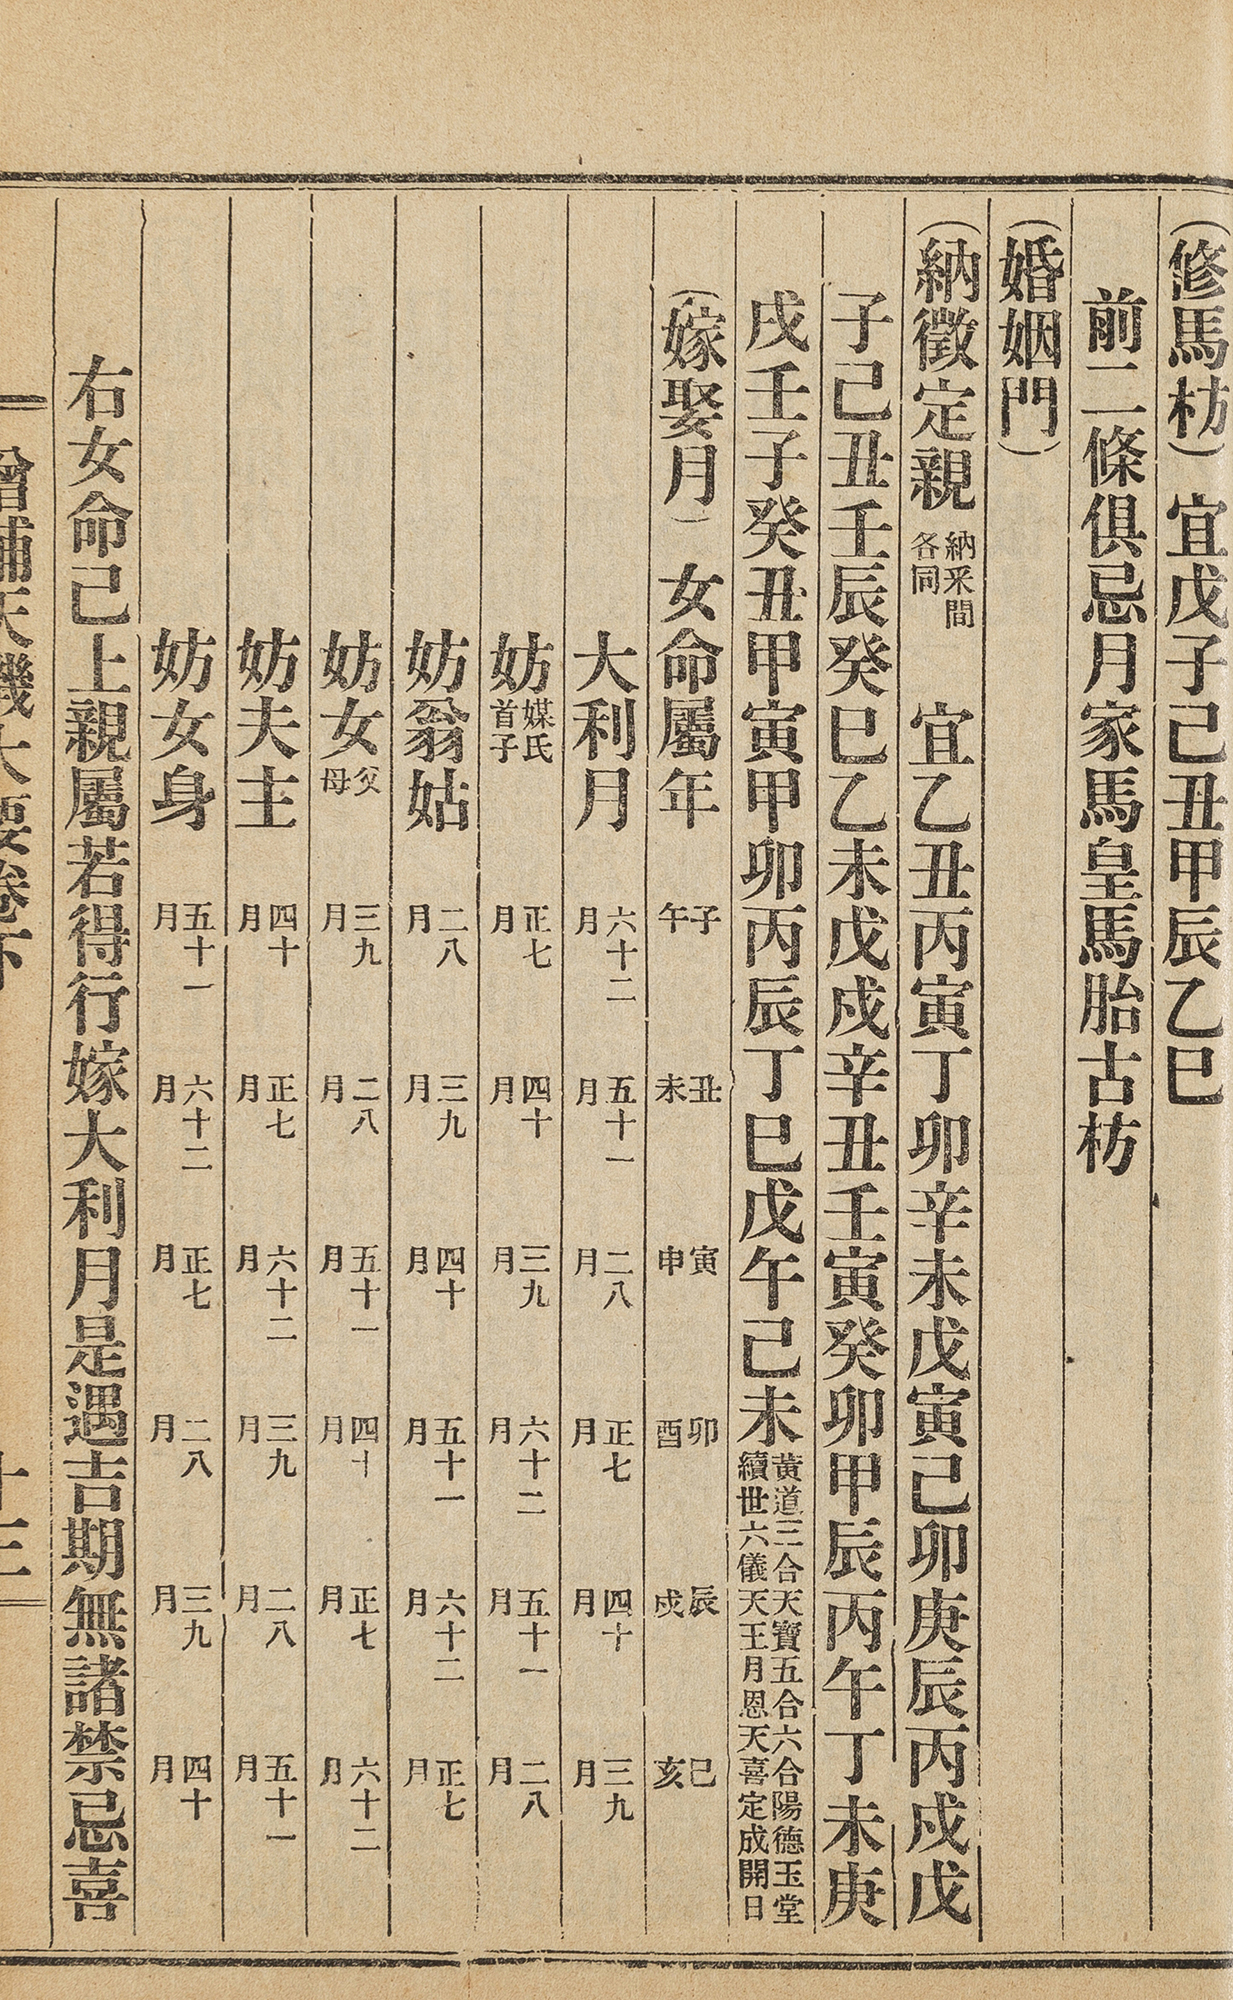 (修馬枋)宜戊子己丑甲辰乙巳
前二條俱忌月家馬皇馬胎古枋
(婚姻門)
(納徵定親 納采間各同 宜乙丑丙寅丁卯辛未戊寅己卯庚辰丙戌戊
子己丑壬辰癸巳乙未戊戌辛丑壬寅癸卯甲辰丙午丁未庚
戌壬子癸丑甲寅甲卯丙辰丁巳戊午己未 黄道三合天寶五合六合陽德玉堂續世六儀天王月恩天喜定成開日
(嫁娶月)女命屬年 子午 丑未 寅申 卯酉 辰戌 巳亥
大利月 六十二月 五十一月 二八月 正七月 四十月 三九月
妨媒氏首子 正七月 四十月 三九月 六十二月 五十一月 二八月
妨翁姑 二八月 三九月 四十月 五十一月 六十二月 正七月
妨女父母 三九月 二八月 五十一月 四十月 正七月 六十二月
妨夫主 四十月 正七月 六十二月 三九月 二八月 五十一月
妨女身 五十一月 六十二月 正七月 二八月 三九月 四十月
右女命己上親屬若得行嫁大利月是遇吉期無諸禁忌喜
增補天機大要卷下 十三